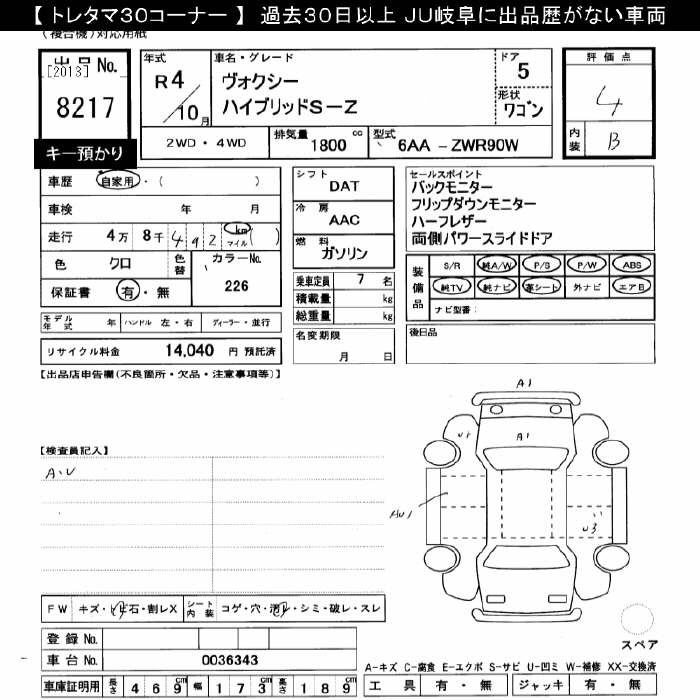 【 トレタマ30コーナー 】 過去30日以上 JU岐阜に出品歴がない車両
(複合機)対応用紙
出品 No.
[2013]
8217
キー預かり
年式
R4/10月
車名・グレード
ヴォクシー
ハイブリッドS-Z
ドア 5
形状 ワゴン
評価点
4
内装 B
2WD・4WD
排気量 1800 cc
型式 6AA-ZWR90W
車歴 自家用・( )
車検 年 月
走行 4万 8千 492 km マイル ( )
色 クロ
色替
カラーNo. 226
保証書 有・無
シフト DAT
冷房 AAC
燃料 ガソリン
乗車定員 7 名
積載量 kg
総重量 kg
セールスポイント
バックモニター
フリップダウンモニター
ハーフレザー
両側パワースライドドア
装備品
S/R 純A/W P/S P/W ABS
純TV 純ナビ 革シート 外ナビ エアB
ナビ型番:
モデル年式 年 ハンドル 左・右 ディーラー・並行
リサイクル料金 14,040 円 預託済
名変期限
月 日
後日品
【出品店申告欄(不良箇所・欠品・注意事項等)】
A1
U1
A1
【検査員記入】
A・U
AU1
U3
FW キズ・ヒ・飛石・割レX シート内装 コゲ・穴・汚レ・シミ・破レ・スレ
登録 No.
車台 No. 0036343
スペア
A-キズ C-腐食 E-エクボ S-サビ U-凹ミ W-補修 XX-交換済
車庫証明用 長さ 469cm 幅 173cm 高さ 189cm
工具 有・無 ジャッキ 有・無